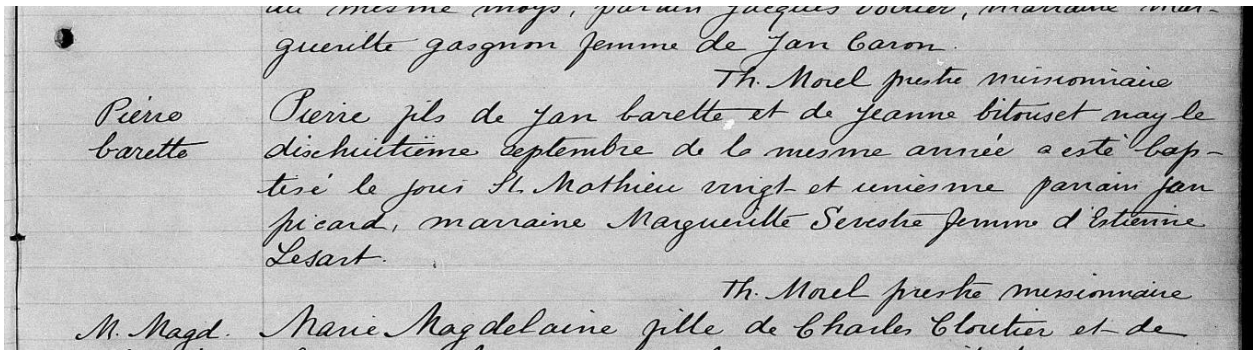 au mesme moys, parain Jacques Voirier, marraine Mar-
gueritte gasgnon femme de Jan Caron.
Th. Morel prestre missionnaire
Piérre Pierre fils de Jan barette et de Jeanne bitouset nay le
barette dischuitiéme septembre de la mesme année a esté bap-
tisé le jour St. Mathieu vingt et uniesme parrain jan
picard, marraine Margueritte Sevestre femme d'Estienne
Lesart.
Th. Morel prestre missionnaire
M. Magd. Marie Magdelaine fille de Charles Cloutier et de